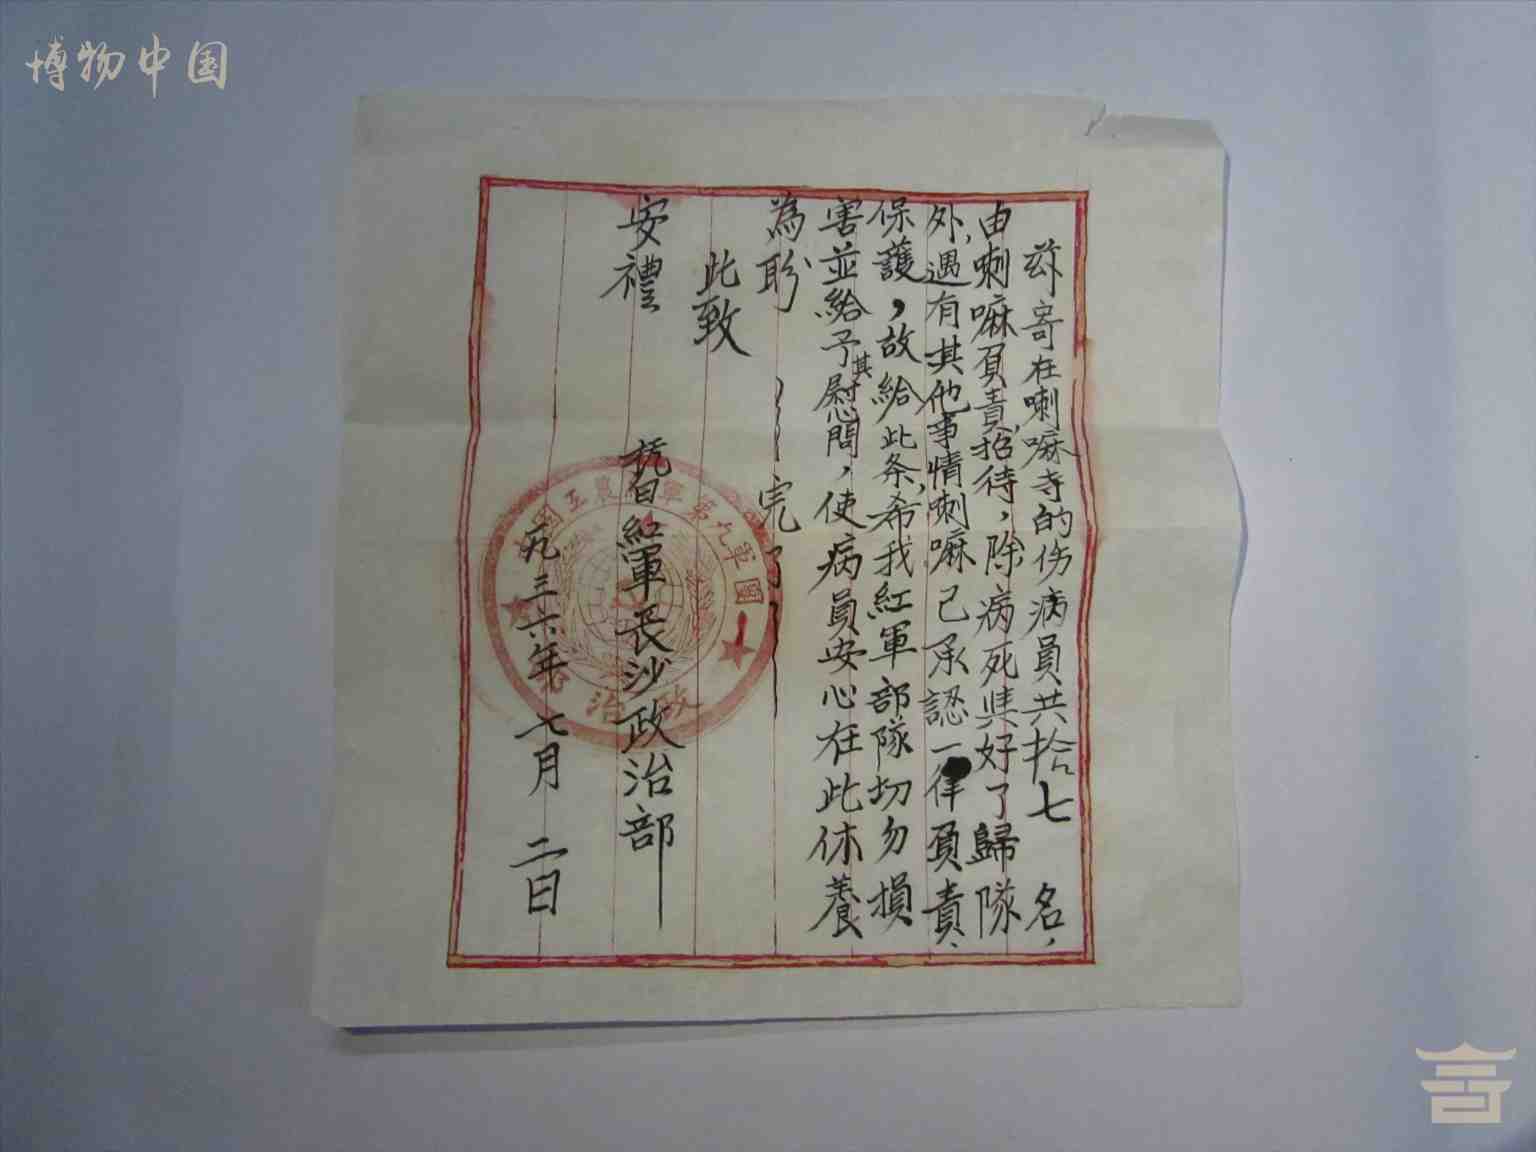 博物中国
兹寄在喇嘛寺的伤病員共拾七名，
由喇嘛負責招待，除病死與好了歸隊
外，遇有其他事情喇嘛已承認一律負責、
保護，故給此条，希我紅軍部隊切勿損
害並給予其慰問，使病員安心在此休養
為盼 完了
此致
安禮
抗日紅軍長沙政治部
一九三六年七月二日
國工農 軍第九軍團
政治